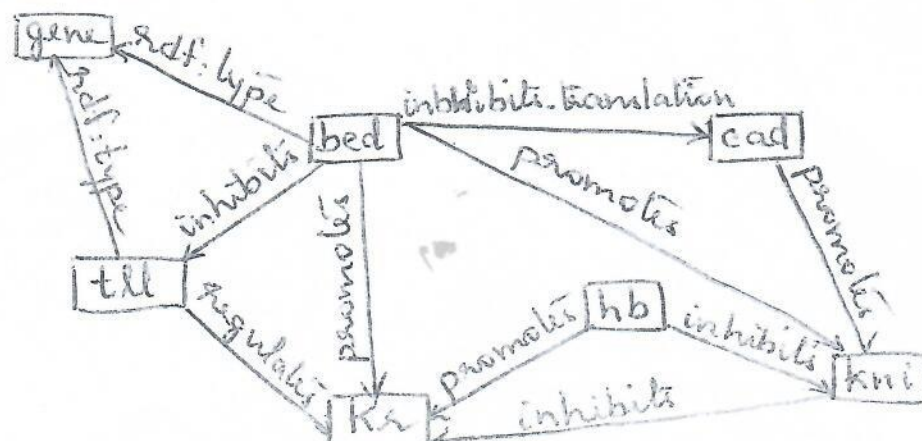 gene
rdf:type
rdf:type
inbhibits.translation
bed
cad
inhibits
promotes
promotes
promotes
tll
regulates
promotes
hb
inhibits
kni
Kr
inhibits